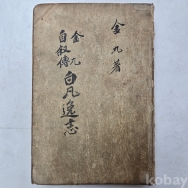 金九著
金九
自敍傳
白凡逸志
kobay